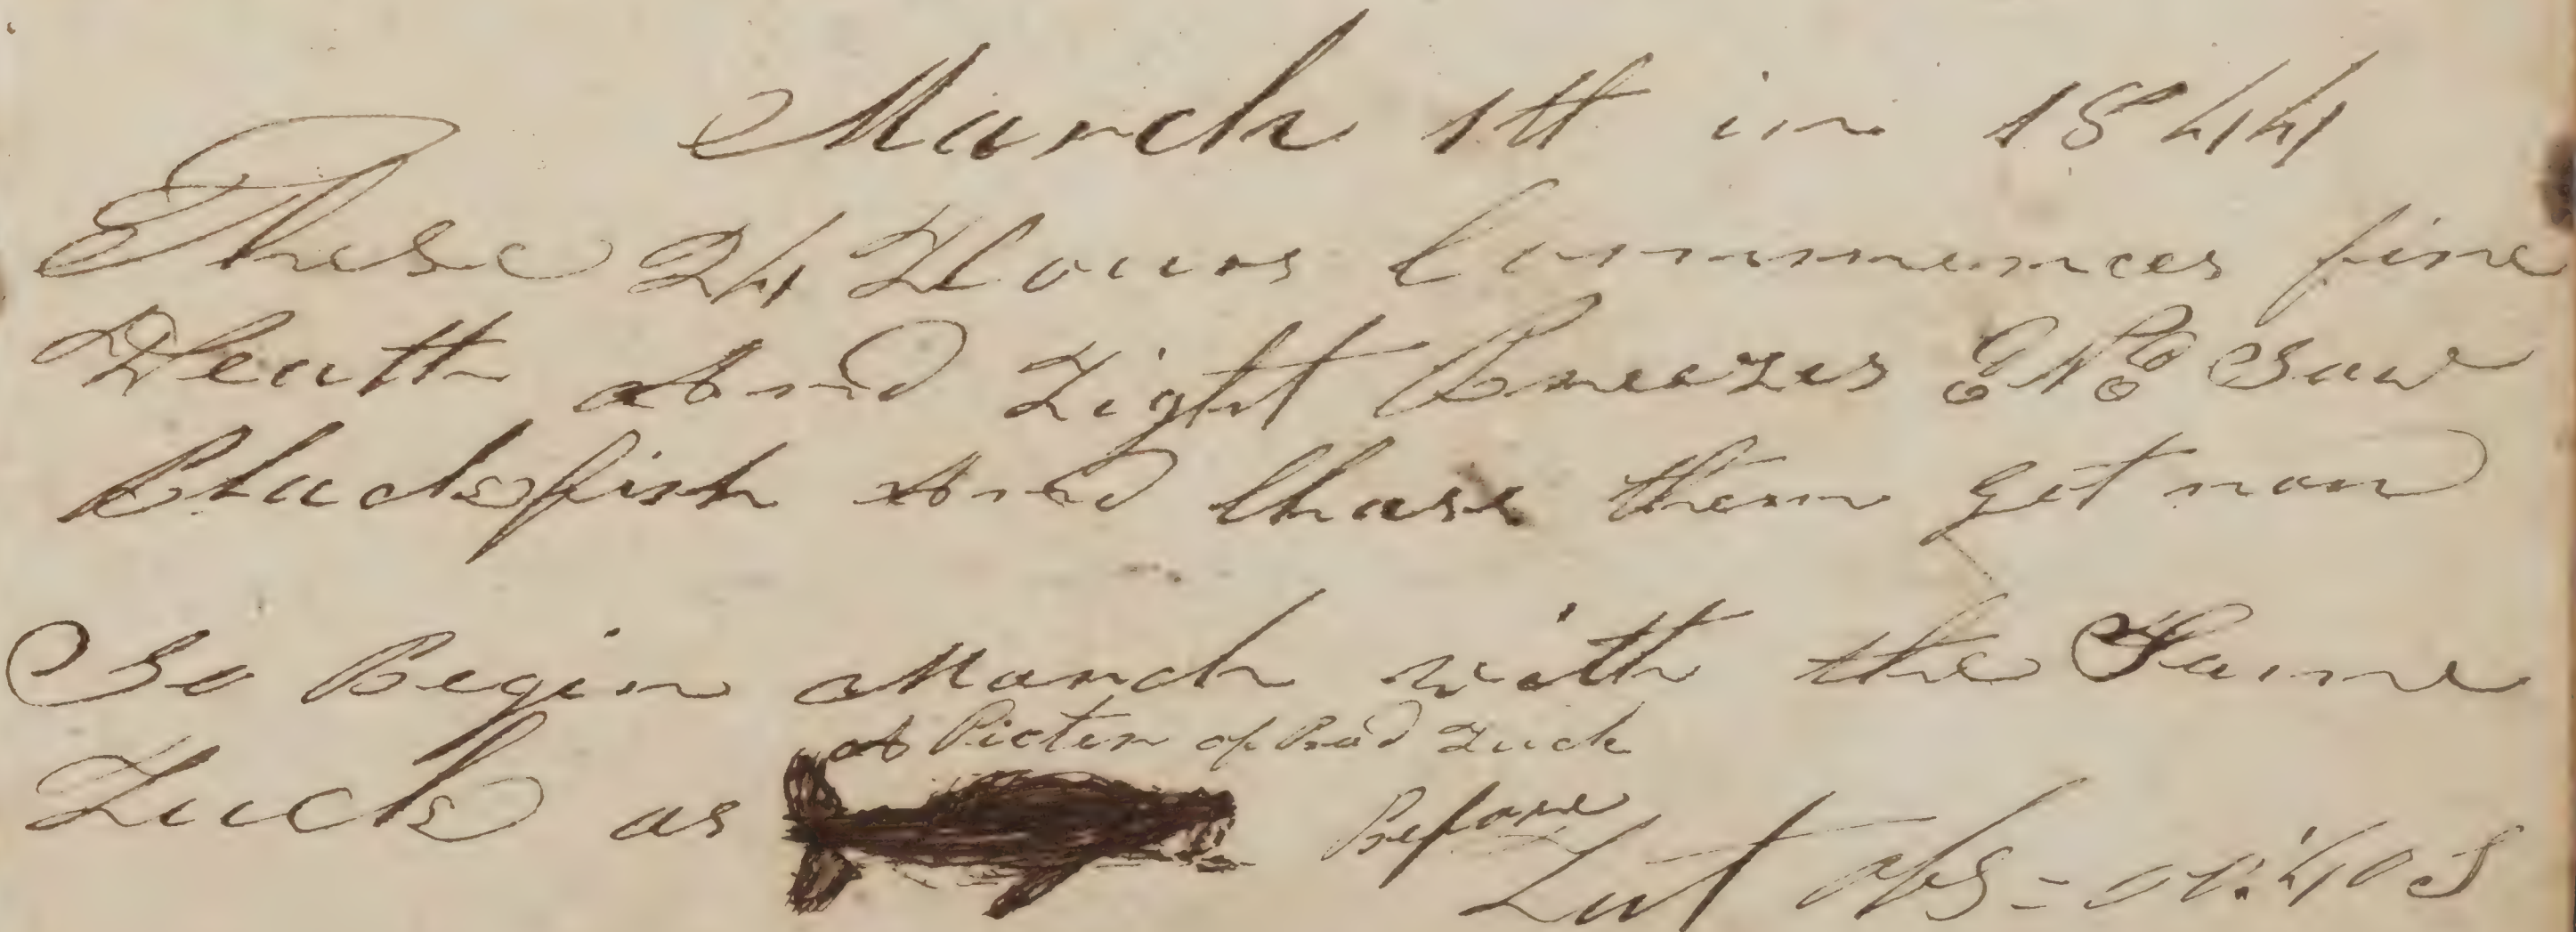 March 1th in 1844
These 24 Hours Commences fine
Weath And Light Breezes Saw
Blackfish And Chase them get non
So Begin March with the Same
A Picter of Bad Luck
Luck as Before
Lat obs = 01:40 S